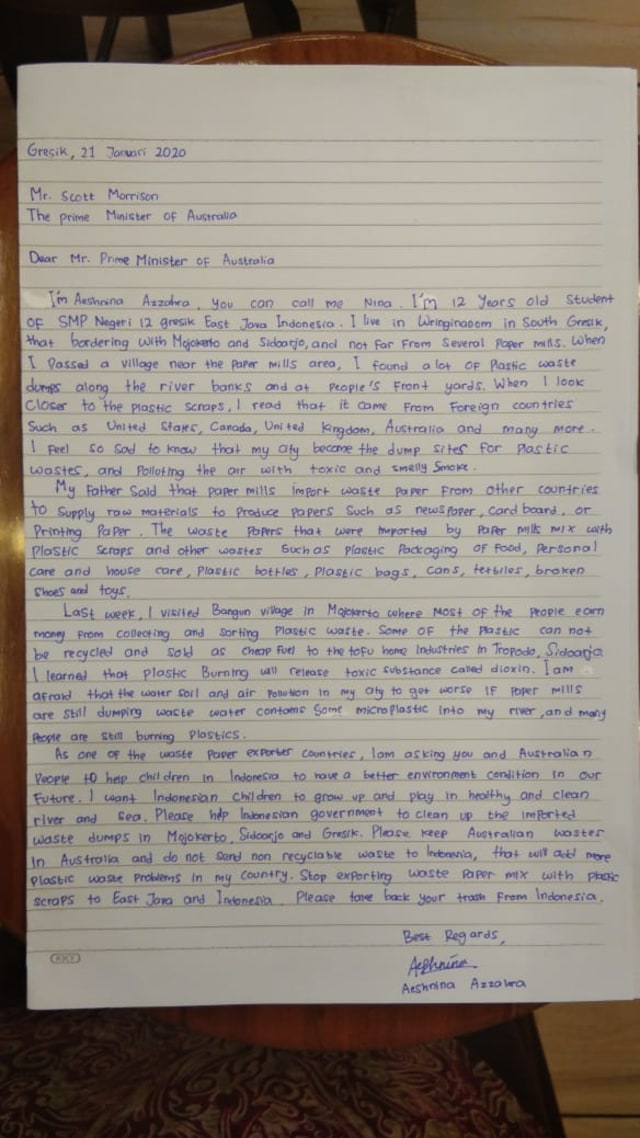 Gresik, 21 Januari 2020
Mr. Scott Morrison
The prime Minister of Australia
Dear Mr. Prime Minister of Australia
I'm Aeshnina Azzahra. You can call me Nina. I'm 12 Years old Student
of SMP Negeri 12 gresik East Java Indonesia. I live in Wringinanom in South Gresik,
that bordering with Mojokerto and Sidoarjo, and not far from Several Paper mills. When
I Passed a village near the Paper mills area, I found a lot of Plastic waste
dumps along the river banks and at People's Front yards. When I look
Closer to the plastic scraps, I read that it came from Foreign countries
Such as United States, Canada, United kingdom, Australia and many more.
I Feel so Sad to know that my city become the dump sites for Plastic
wastes, and Polloting the air with toxic and smelly Smoke.
My Father Said that paper mills import waste paper from other countries
to Supply raw materials to Produce papers Such as newspaper, card board, or
Printing Paper. The waste Papers that were imported by Paper mills mix with
Plastic Scraps and other wastes Such as Plastic Packaging of Food, Personal
care and house care, Plastic bottles, Plastic bags, cans, textiles, broken
Shoes and toys.
Last week, I visited Bangun village in Mojokerto where Most of the People earn
money from collecting and sorting Plastic waste. Some of the Plastic can not
be recycled and sold as cheap Fuel to the tofu home Industries in Tropodo, Sidoarjo.
I learned that plastic Burning will release toxic substance called dioxin. I am
afraid that the water soil and air Pollution in my city to get worse if Paper mills
are still dumping waste water contams Some microplastic into my river, and many
People are still burning Plastics.
As one of the waste Paper exporter countries, I am asking you and Australian
People to help children in Indonesia to have a better environment condition in our
Future. I want Indonesian children to grow up and play in healthy and clean
river and sea. Please help Indonesian government to clean up the imported
waste dumps in Mojokerto, Sidoarjo and Gresik. Please keep Australian wastes
in Australia and do not send non recyclable waste to Indonesia, that will add more
Plastic waste Problems in my country. Stop exporting waste Paper mix with plastic
scraps to East Java and Indonesia. Please take back your trash from Indonesia.
Best Regards,
Aeshnina
Aeshnina Azzahra
KKY